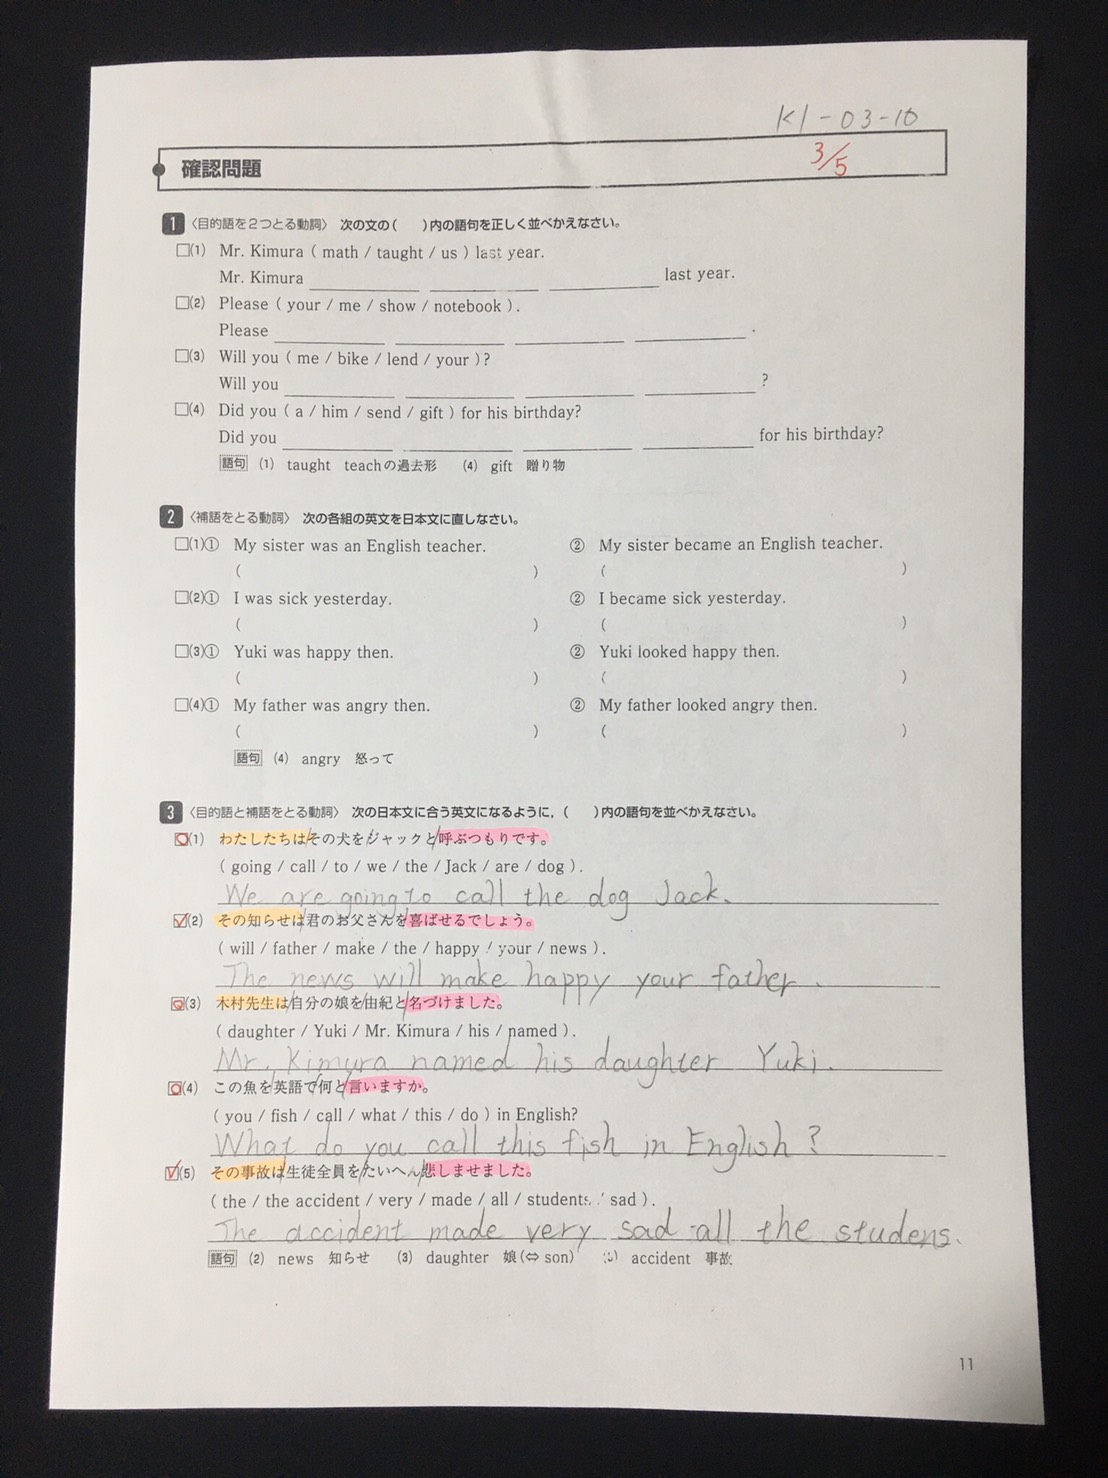 K1-03-10
確認問題
3/5
1 〈目的語を2つとる動詞〉 次の文の( )内の語句を正しく並べかえなさい。
□(1) Mr. Kimura ( math / taught / us ) last year.
Mr. Kimura last year.
□(2) Please ( your / me / show / notebook ).
Please .
□(3) Will you ( me / bike / lend / your )?
Will you ?
□(4) Did you ( a / him / send / gift ) for his birthday?
Did you for his birthday?
語句 (1) taught teachの過去形 (4) gift 贈り物
2 〈補語をとる動詞〉 次の各組の英文を日本文に直しなさい。
□(1)① My sister was an English teacher. ② My sister became an English teacher.
( ) ( )
□(2)① I was sick yesterday. ② I became sick yesterday.
( ) ( )
□(3)① Yuki was happy then. ② Yuki looked happy then.
( ) ( )
□(4)① My father was angry then. ② My father looked angry then.
( ) ( )
語句 (4) angry 怒って
3 〈目的語と補語をとる動詞〉 次の日本文に合う英文になるように, ( )内の語句を並べかえなさい。
□(1) わたしたちは/その犬を/ジャックと/呼ぶつもりです。
( going / call / to / we / the / Jack / are / dog ).
We are going to call the dog Jack.
□(2) その知らせは/君のお父さんを/喜ばせるでしょう。
( will / father / make / the / happy / your / news ).
The news will make happy your father.
□(3) 木村先生は/自分の娘を/由紀と/名づけました。
( daughter / Yuki / Mr. Kimura / his / named ).
Mr. Kimura named his daughter Yuki.
□(4) この魚を/英語で/何と/言いますか。
( you / fish / call / what / this / do ) in English?
What do you call this fish in English?
□(5) その事故は/生徒全員を/たいへん/悲しませました。
( the / the accident / very / made / all / students / sad ).
The accident made very sad all the studens.
語句 (2) news 知らせ (3) daughter 娘(⇔ son) (5) accident 事故
11